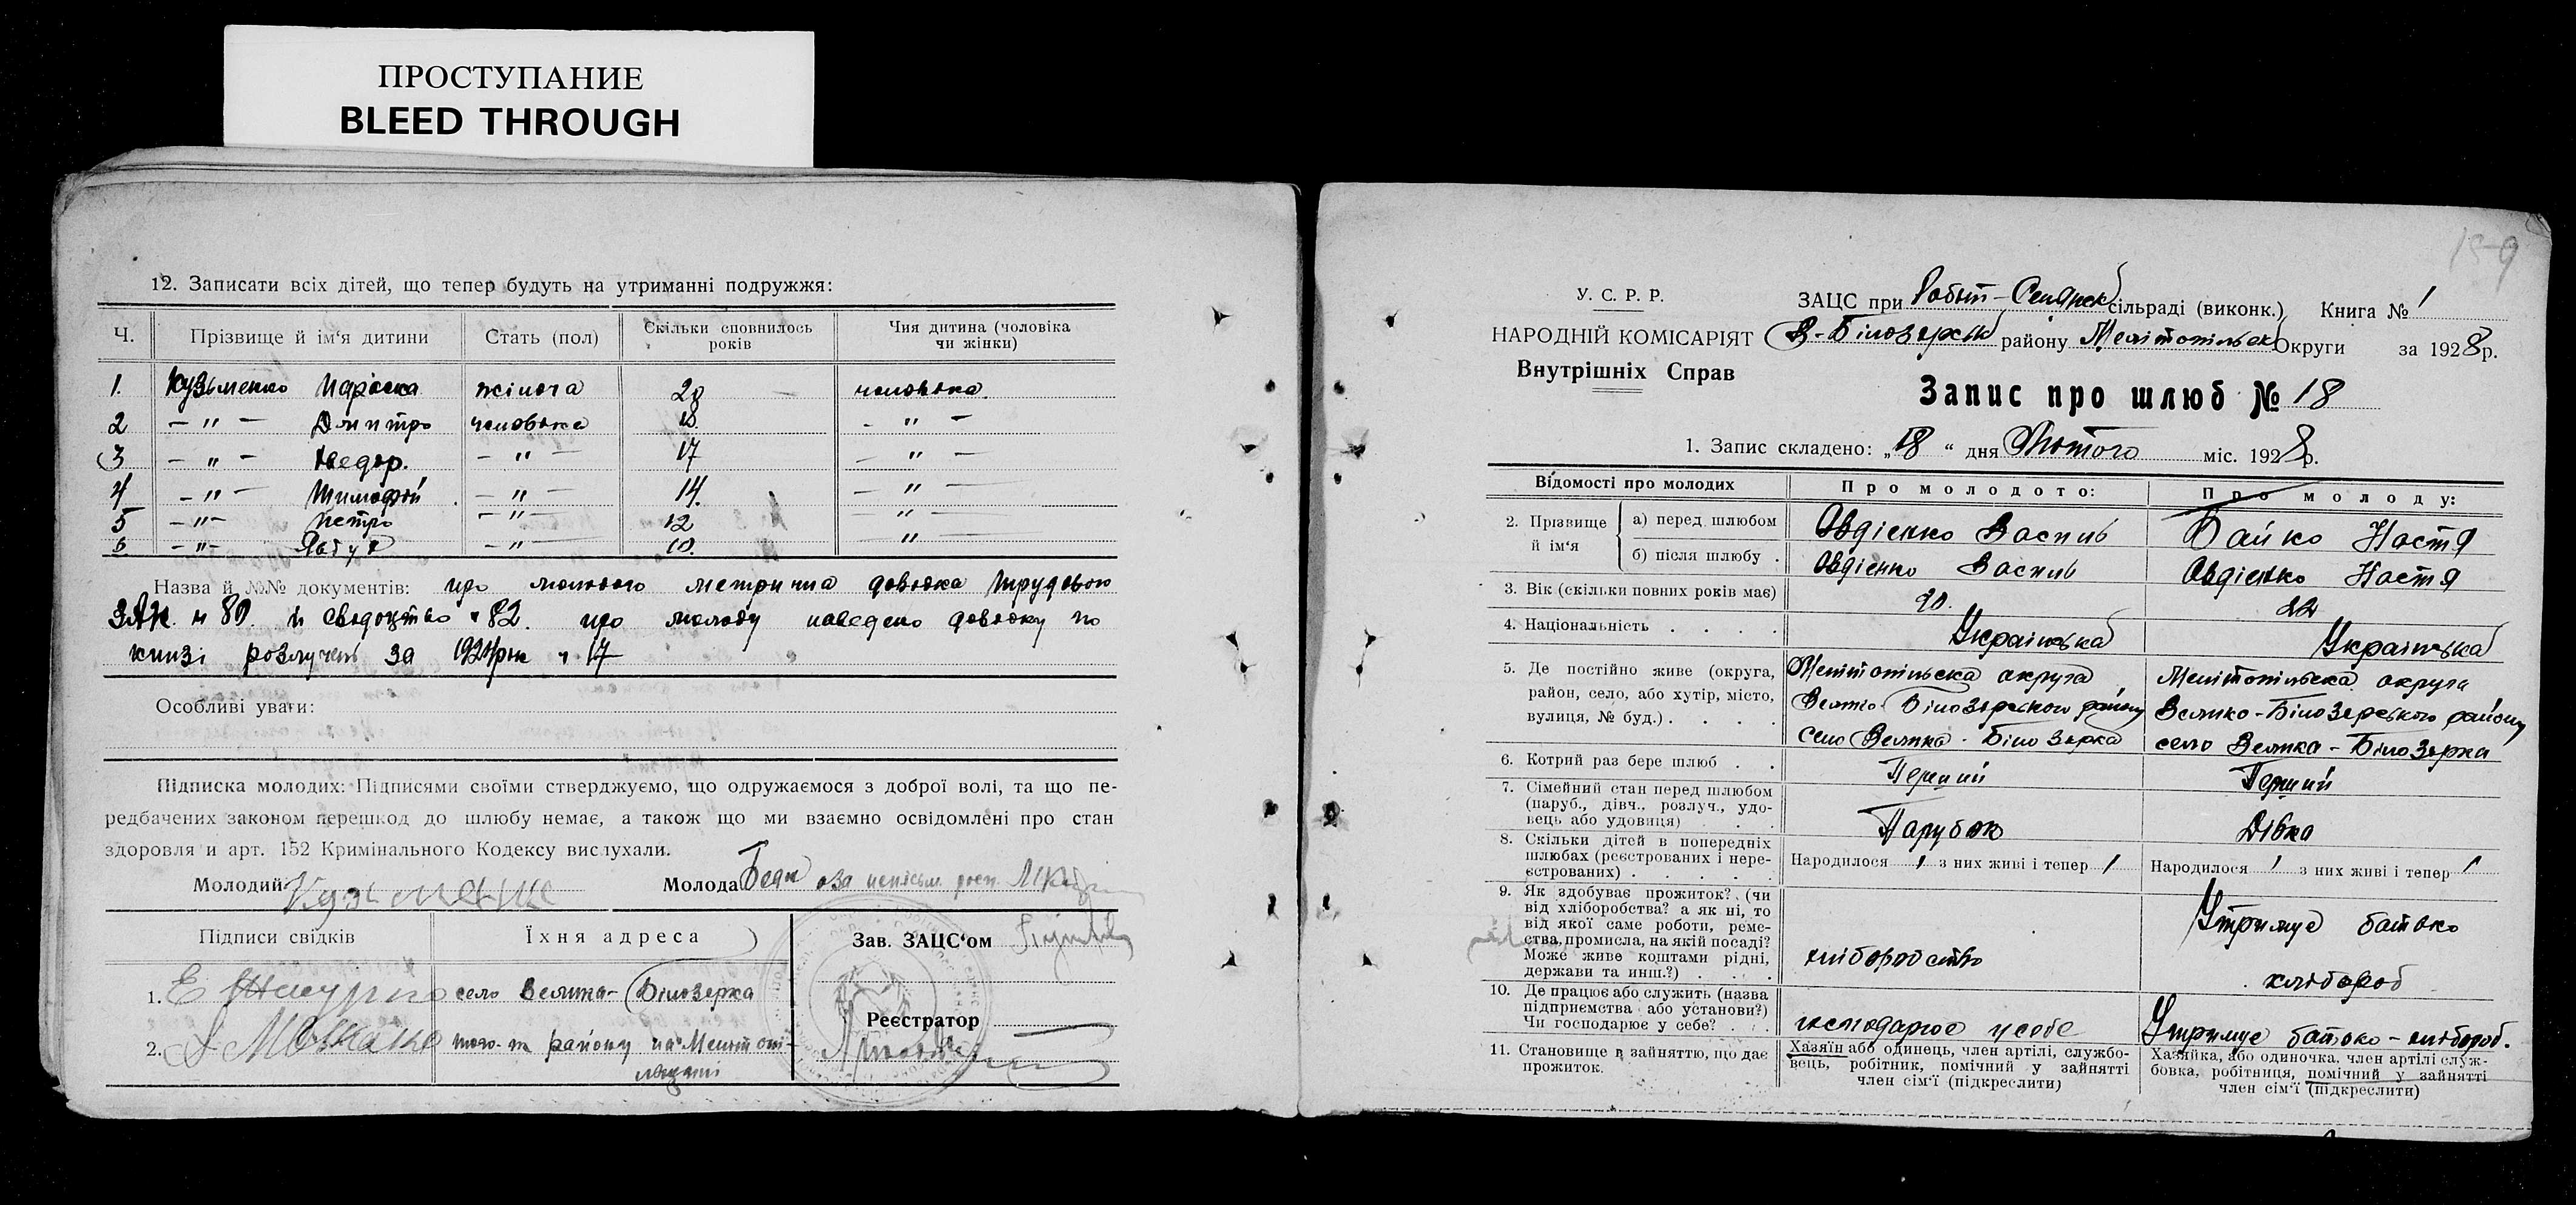 ПРОСТУПАНИЕ
BLEED THROUGH
12. Записати всіх дітей, що тепер будуть на утриманні подружжя:
Ч. Прізвище й ім'я дитини Стать (пол) Скільки сповнилось років Чия дитина (чоловіка чи жінки)
1. Кузьменко жіноча 20 чоловіка.
2 — " — Дмитро чоловіча 18. — " —
3 — " — Федор. — " — 17 — " —
4 — " — Тимофій — " — 14. — " —
5 — " — Петро — " — 12 — " —
6. — " — — " — 10. — " —
Назва й №№ документів: про молодого метрична довідка Трудового
ЗАГС. № 80. й свідоцтво № 82. про молоду наведено довідку по
книзі розлучень за 1924 рік № 17
Особливі уваги:
Підписка молодих: Підписями своїми стверджуємо, що одружаємося з доброї волі, та що пе-
редбачених законом перешкод до шлюбу немає, а також що ми взаємно освідомлені про стан
здоровля и арт. 152 Кримінального Кодексу вислухали.
Молодий Кузьменко Молода
Підписи свідків Їхня адреса Зав. ЗАЦС'ом
1. Е село Велика-Білозерка
2. того-ж району на Меліто-
Реєстратор
У. С. Р. Р.
НАРОДНІЙ КОМІСАРІЯТ
Внутрішніх Справ
ЗАЦС при Робіт-Селянськ сільраді (виконк.) Книга № 1
В-Білозерськ району Мелітопільськ Округи за 1928 р.
Запис про шлюб № 18
1. Запис складено: „18“ дня Лютого міс. 1928 р.
Відомості про молодих Про молодого: Про молоду:
2. Прізвище й ім'я а) перед шлюбом Овдієнко Василь Байко Настя
б) після шлюбу . Овдієнко Василь Овдієнко Настя
3. Вік (скільки повних років має) 20. 22
4. Національність . . . . Українська Українська
5. Де постійно живе (округа, район, село, або хутір, місто, вулиця, № буд.) . . . .
Мелітопільска округа Велико-Білозерского району село Велика-Білозерка
Мелітопільска округа Велико-Білозерського району село Велика-Білозерка
6. Котрий раз бере шлюб . . Перший Перший
7. Сімейний стан перед шлюбом (паруб., дівч., розлуч., удовець або удовиця) . . . Парубок Дівка
8. Скільки дітей в попередніх шлюбах (реєстрованих і нереєстрованих) . . . . . Народилося / з них живі і тепер / Народилося / з них живі і тепер /
9. Як здобуває прожиток? (чи від хліборобства? а як ні, то від якої саме роботи, ремества, промисла, на якій посаді? Може живе коштами рідні, держави та инш.?) . . . . хліборобство Утримує батько хлібороб
10. Де працює або служить (назва підприємства або установи?) Чи господарює у себе? . . . господарює у себе Утримує батько-хлібороб.
11. Становище в зайняттю, що дає прожиток.
Хазяїн або одинець, член артілі, службовець, робітник, помічний у зайнятті член сім'ї (підкреслити)
Хазяйка, або одиночка, член артілі службовка, робітниця, помічний у зайнятті член сім'ї (підкреслити)